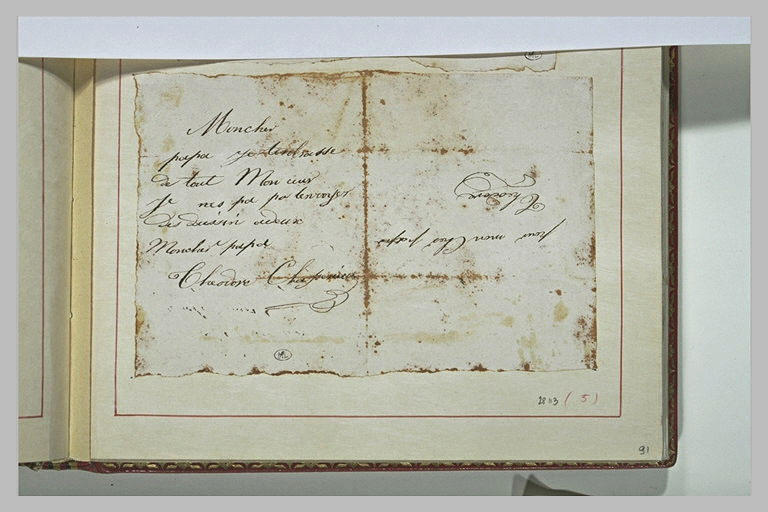 Moncher
papa je tenbrasse
de tout Mon ceur
Je nes pa pa tenvoyer
des dessin adeux
Moncher papa
Theodore Chasseriau
pour mon Cher papa
Theodore
ML
2813 (5)
91